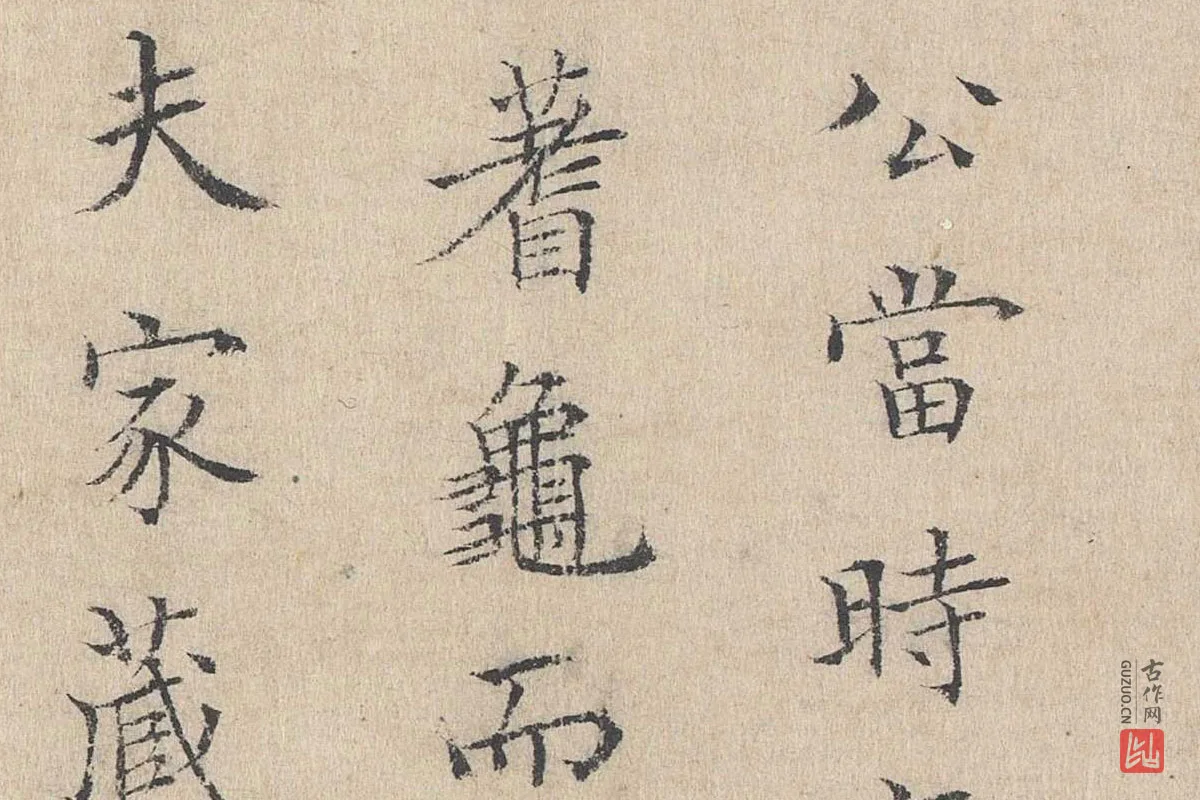 公當時
蓍龜而
夫家藏
古作网
GUZUO.CN